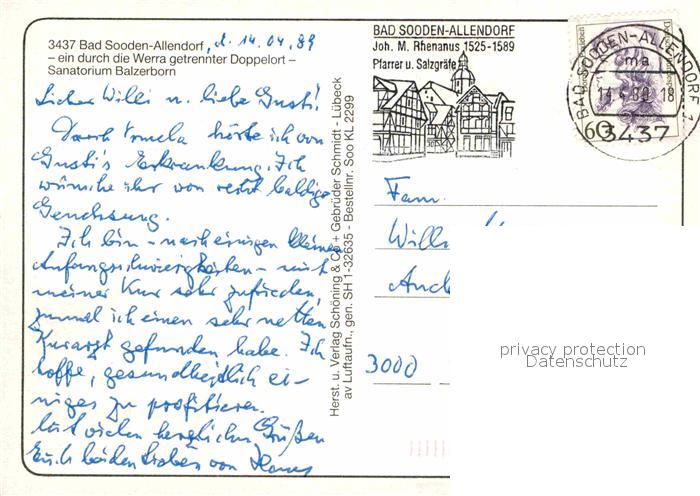 3437 Bad Sooden-Allendorf, d. 14.04.89
– ein durch die Werra getrennter Doppelort –
Sanatorium Balzerborn
Lieber Willi u. liebe Gusti!
Durch hörte ich von
Gusti's Erkrankung. Ich
wünsche ihr von recht baldige
Genesung.
Ich bin – nach einigen kleinen
Anfangsschwierigkeiten – mit
meiner Kur sehr zufrieden,
zumal ich einen sehr netten
Kurarzt gefunden habe. Ich
hoffe, gesundheitlich ei-
niges zu profitieren.
Mit vielen herzlichen Grüßen
Euch beiden Lieben von
Herst. u. Verlag Schöning & Co + Gebrüder Schmidt - Lübeck
av Luftaufn., gen. SH 1-32635 - Bestellnr. Soo KL 2299
BAD SOODEN-ALLENDORF
Joh. M. Rhenanus 1525-1589
Pfarrer u. Salzgräfe
BAD SOODEN-ALLENDORF 1
ma
14.4.89-18
3437
60
Fam.
Willi
3000
privacy protection
Datenschutz